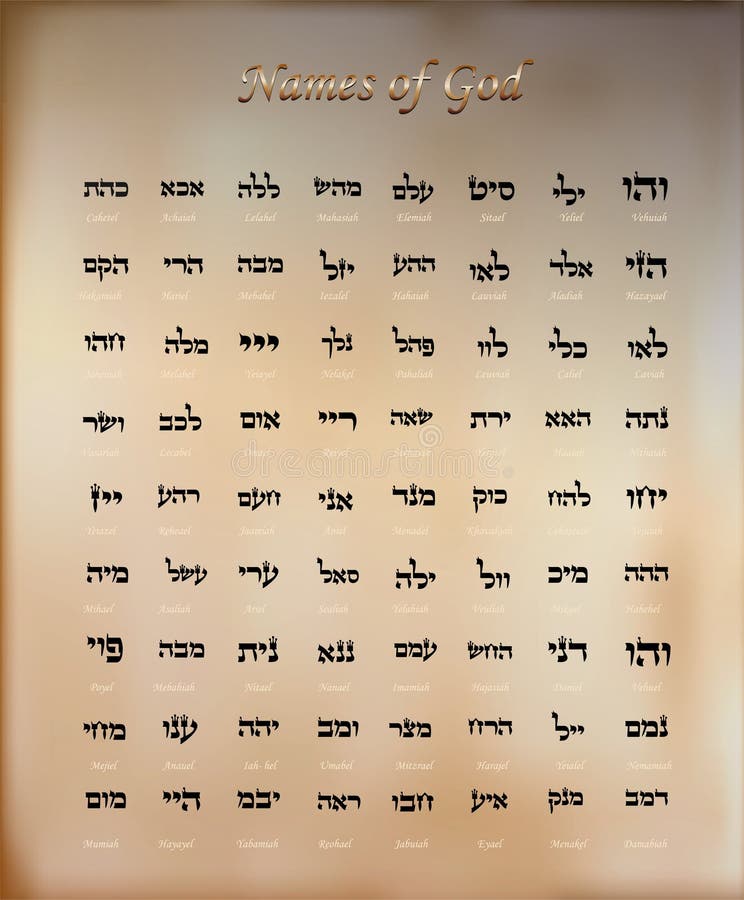 Names of God
והו ילי סיט עלם מהש ללה אכא כהת
Cahetel Achaiah Lelahel Mahasiah Elemiah Sitael Yeliel Vehuiah
הזי אלד לאו ההע יזל מבה הרי הקם
Hakamiah Hariel Mebahel Iezalel Hahaiah Lauviah Aladiah Hazayael
לאו כלי לוו פהל נלך ייי מלה חהו
Melahel Yeiayel Nelakel Pahaliah Leuviah Caliel Laviah
נתה האא ירת שאה ריי אום לכב ושר
Vasariah Lecabel Reiyel Haaiah Nithaiah
יחו להח כוק מנד אני חעם רהע ייז
Yeiazel Reheael Jaamiah Aniel Menadel
ההה מיכ וול ילה סאל ערי עשל מיה
Mihael Asaliah Ariel Sealiah Yelahiah Veuliah Mikael Hahehel
והו דני החש עמם ננא נית מבה פוי
Poyel Mebahiah Nitael Nanael Imamiah Hajasiah Daniel Vehuel
נמם ייל הרח מצר ומב יהה ענו מחי
Mejiel Anauel Iah- hel Umabel Mitzrael Harajel Yeialel Nemamiah
דמב מנק איע חבו ראה יבמ היי מום
Mumiah Hayayel Yabamiah Reohael Jabuiah Eyael Menakel Damabiah
dreamstime